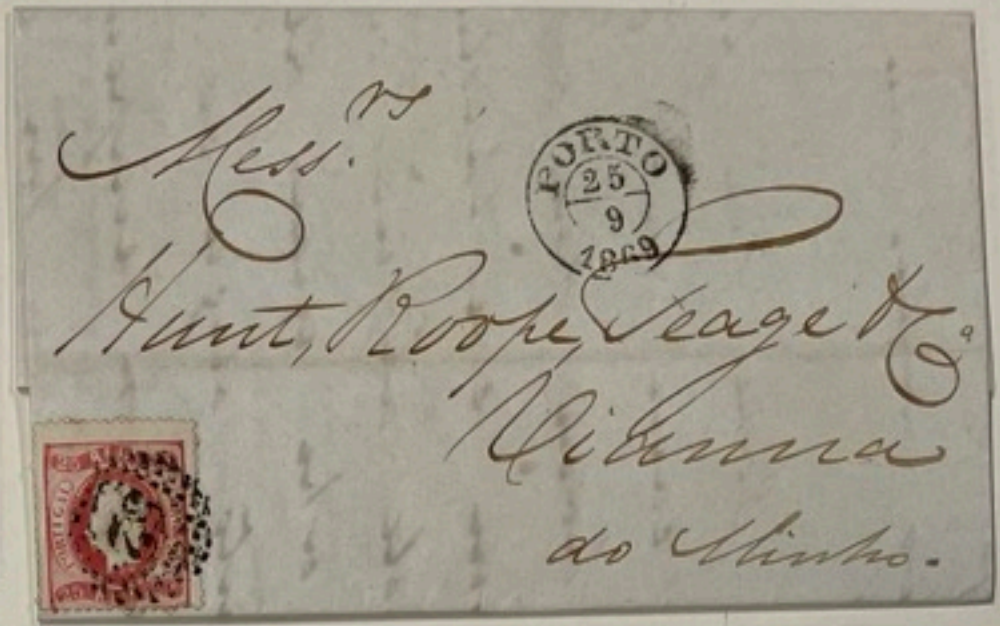 Mess.rs
PORTO
25
9
1869
Hunt, Roope, Teage & Cª
Vianna
do Minho.